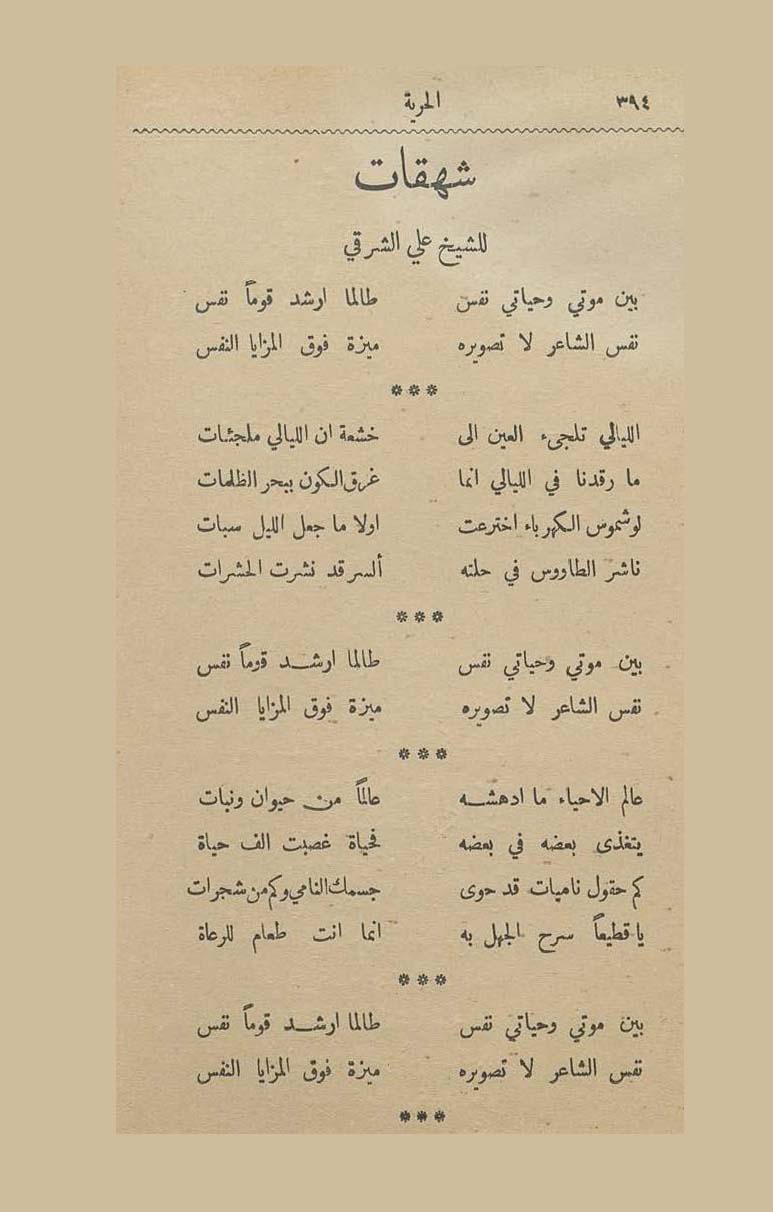 ٣٩٤ الحرية
شهقات
للشيخ علي الشرقي
بين موتي وحياتي نفس طالما ارشد قوماً نفس
نفس الشاعر لا تصويره ميزة فوق المزايا النفس
***
الليالي تلجىء العين الى خشعة ان الليالي ملجئات
ما رقدنا في الليالي انما غرق الكون ببحر الظلمات
لو شموس الكهرباء اخترعت اولا ما جعل الليل سبات
ناشر الطاووس في حلته ألسر قد نشرت الحشرات
***
بين موتي وحياتي نفس طالما ارشد قوماً نفس
نفس الشاعر لا تصويره ميزة فوق المزايا النفس
***
عالم الاحياء ما ادهشه عالماً من حيوان ونبات
يتغذى بعضه في بعضه فحياة غصبت الف حياة
كم حقول ناميات قد حوى جسمك النامي وكم من شجرات
يا قطيعاً سرح الجهل به انما انت طعام للرعاة
***
بين موتي وحياتي نفس طالما ارشد قوماً نفس
نفس الشاعر لا تصويره ميزة فوق المزايا النفس
***